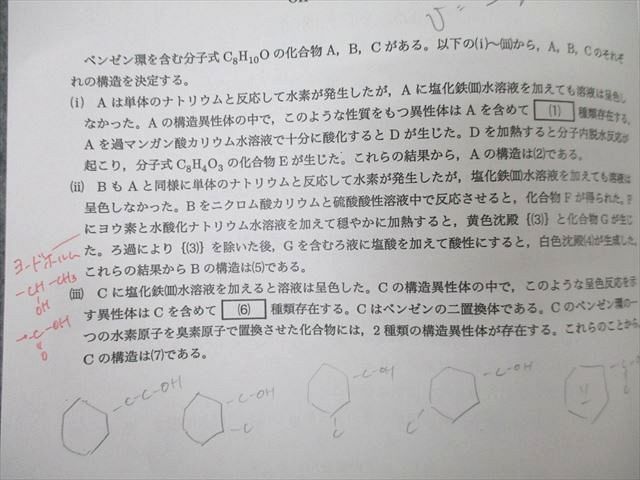 OH
ベンゼン環を含む分子式C₈H₁₀Oの化合物A，B，Cがある。以下の(i)～(iii)から，A，B，Cのそれぞ
れの構造を決定する。
(i) Aは単体のナトリウムと反応して水素が発生したが，Aに塩化鉄(III)水溶液を加えても溶液は呈色し
なかった。Aの構造異性体の中で，このような性質をもつ異性体はAを含めて (1) 種類存在する。
Aを過マンガン酸カリウム水溶液で十分に酸化するとDが生じた。Dを加熱すると分子内脱水反応が
起こり，分子式C₈H₄O₃の化合物Eが生じた。これらの結果から，Aの構造は(2)である。
(ii) BもAと同様に単体のナトリウムと反応して水素が発生したが，塩化鉄(III)水溶液を加えても溶液は
呈色しなかった。Bをニクロム酸カリウムと硫酸酸性溶液中で反応させると，化合物Fが得られた。F
にヨウ素と水酸化ナトリウム水溶液を加えて穏やかに加熱すると，黄色沈殿{(3)}と化合物Gが生じ
た。ろ過により{(3)}を除いた後，Gを含むろ液に塩酸を加えて酸性にすると，白色沈殿(4)が生成した。
これらの結果からBの構造は(5)である。
(iii) Cに塩化鉄(III)水溶液を加えると溶液は呈色した。Cの構造異性体の中で，このような呈色反応を示
す異性体はCを含めて (6) 種類存在する。Cはベンゼンの二置換体である。Cのベンゼン環の一
つの水素原子を臭素原子で置換させた化合物には，2種類の構造異性体が存在する。これらのことから，
Cの構造は(7)である。
ヨードホルム
-CH-CH₃
OH
→-C-OH
O
-C-C-OH
-C-OH
-C
-C-OH
C
-C-OH
C